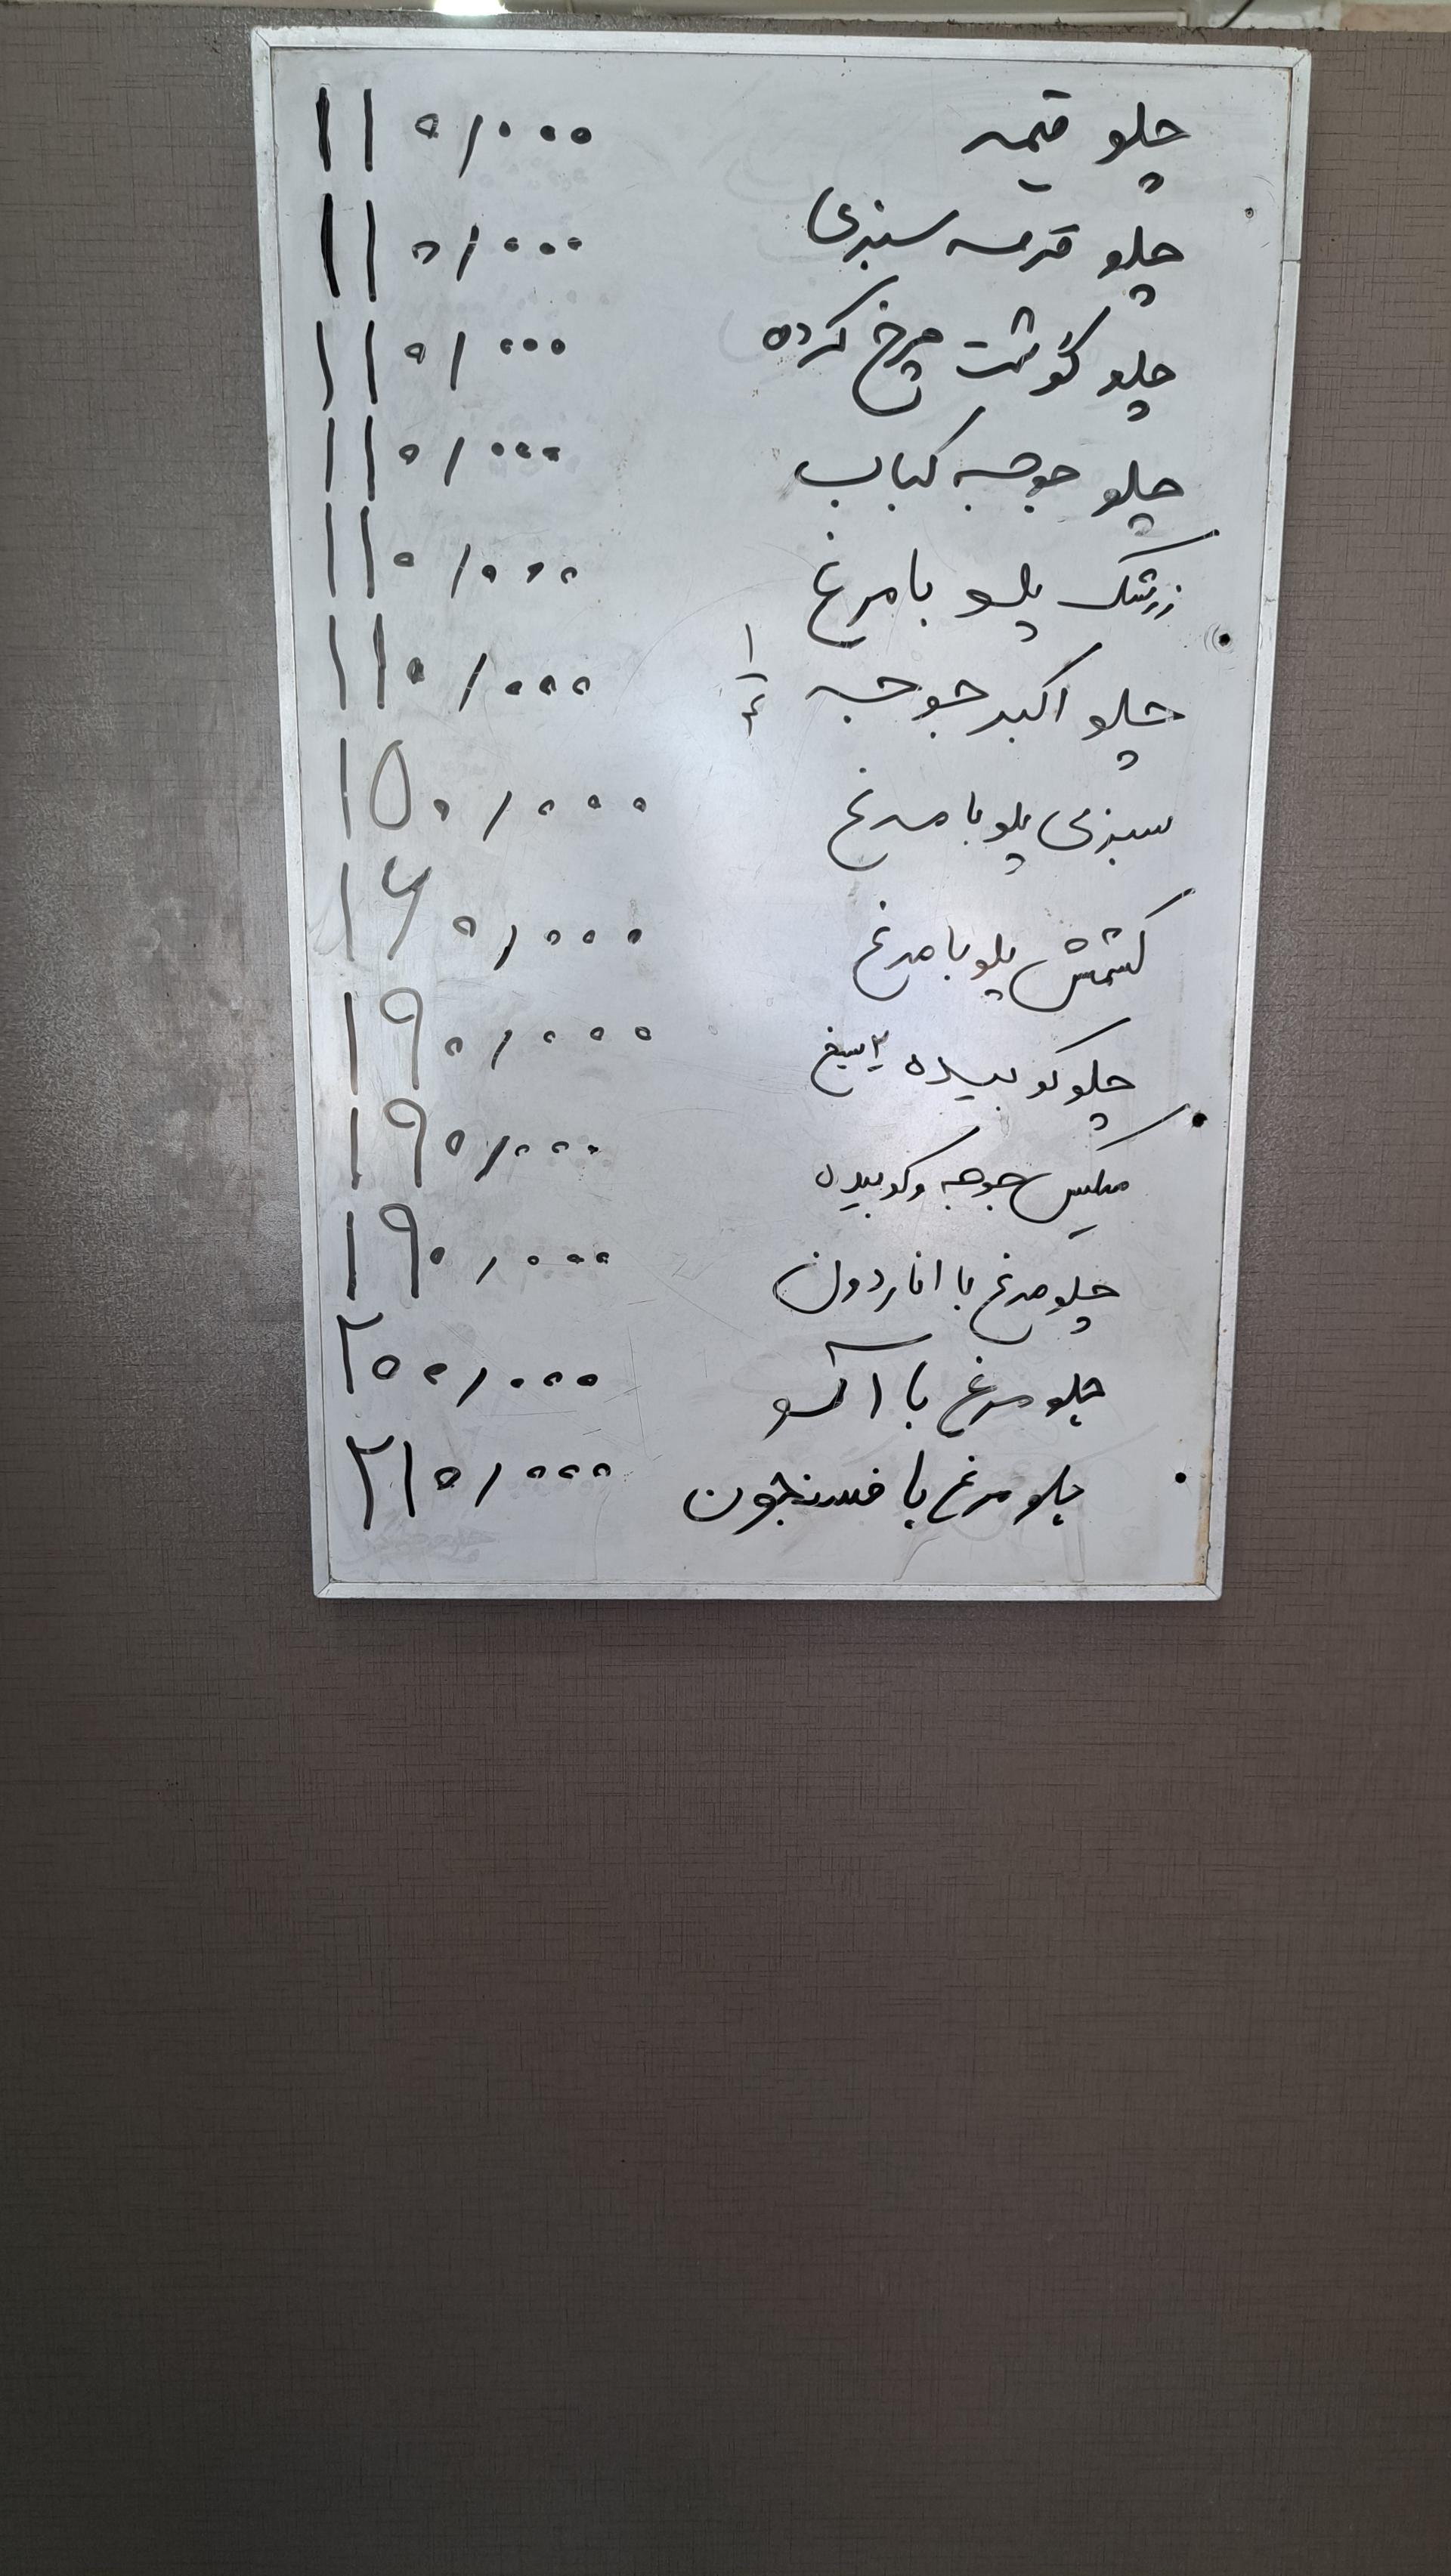 چلو قیمه ۱۱۰/۰۰۰
چلو قرمه سبزی ۱۱۰/۰۰۰
چلو گوشت چرخ کرده ۱۱۰/۰۰۰
چلو جوجه کباب ۱۱۰/۰۰۰
زرشک پلو با مرغ ۱۱۰/۰۰۰
چلو اکبر جوجه ۱/۴ ۱۱۰/۰۰۰
سبزی پلو با مرغ ۱۵۰/۰۰۰
کشمش پلو با مرغ ۱۶۰/۰۰۰
چلو کوبیده ۲ سیخ ۱۹۰/۰۰۰
میکس جوجه و کوبیده ۱۹۰/۰۰۰
چلو مرغ با اناردون ۱۹۰/۰۰۰
چلو مرغ با آلو ۲۰۰/۰۰۰
چلو مرغ با فسنجون ۲۱۰/۰۰۰